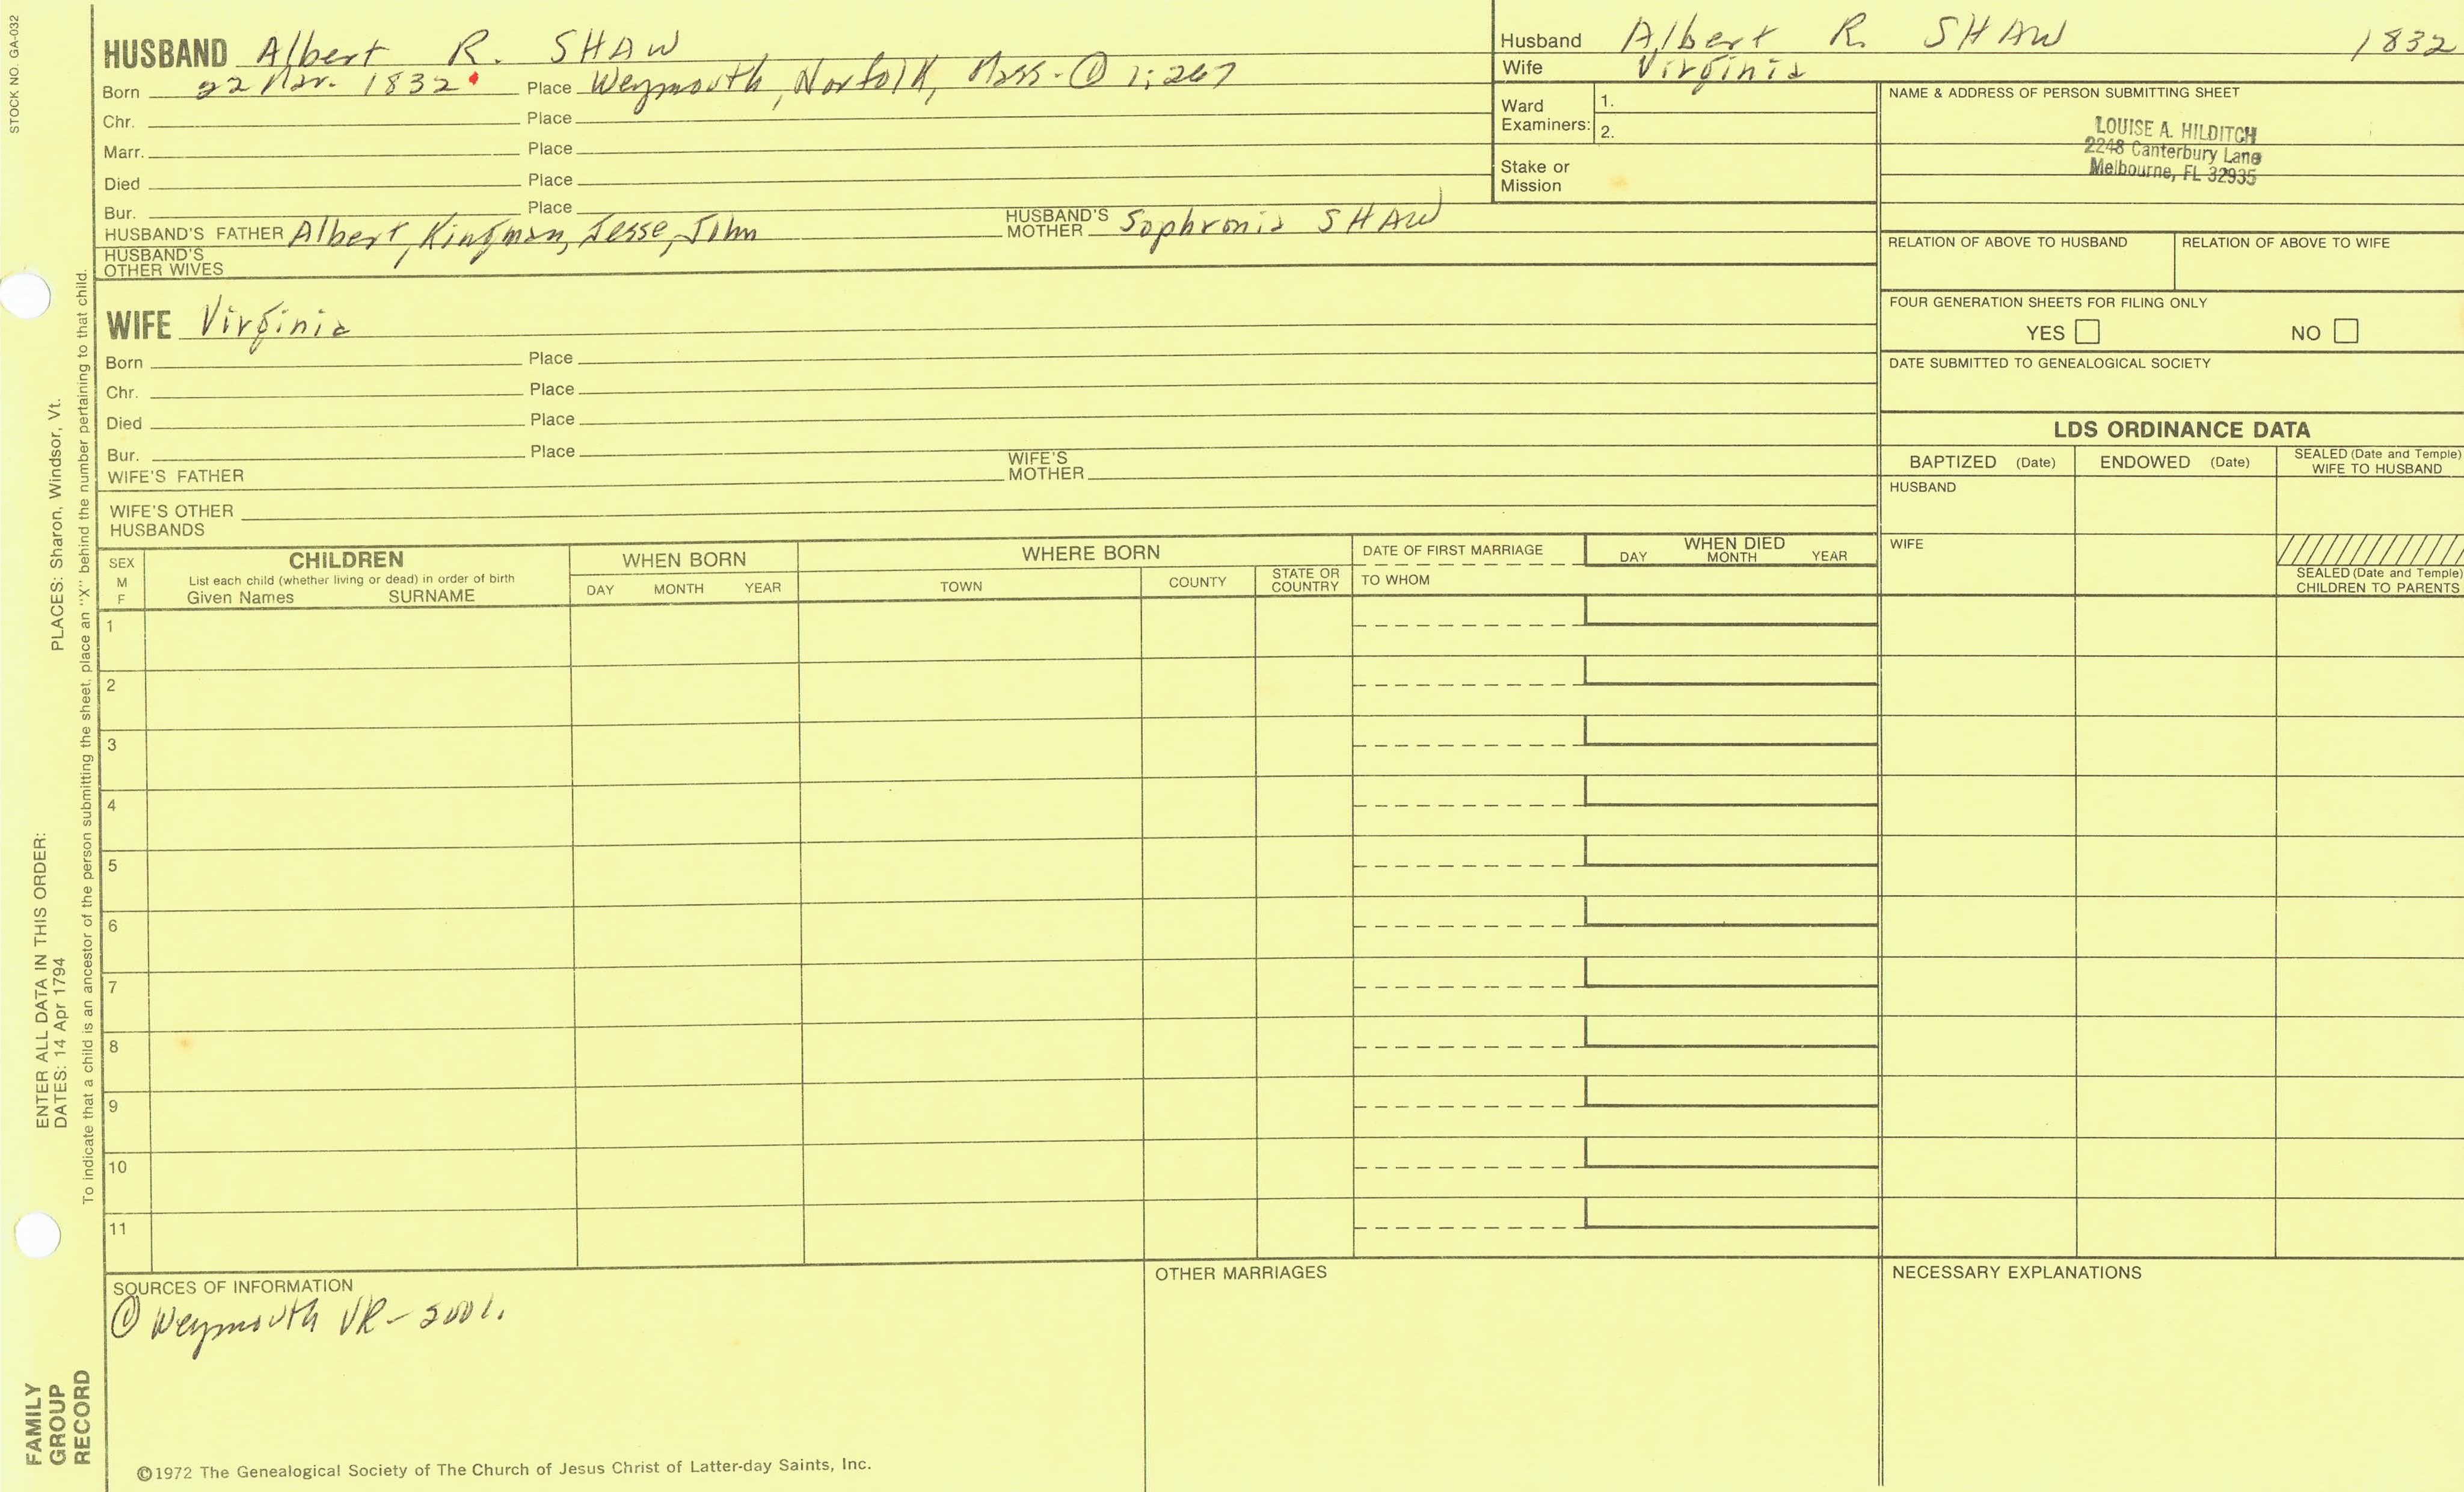 STOCK NO. GA-032
HUSBAND Albert R. SHAW
Born 22 Mar. 1832 Place Weymouth, Norfolk, Mass. ① 1:267
Chr. Place
Marr. Place
Died Place
Bur. Place
HUSBAND'S FATHER Albert, Kingman, Jesse, John HUSBAND'S MOTHER Sophronia SHAW
HUSBAND'S OTHER WIVES
Husband Albert R. SHAW 1832
Wife Virginia
Ward Examiners: 1.
2.
Stake or Mission
NAME & ADDRESS OF PERSON SUBMITTING SHEET
LOUISE A. HILDITCH
2248 Canterbury Lane
Melbourne, FL 32935
RELATION OF ABOVE TO HUSBAND RELATION OF ABOVE TO WIFE
FOUR GENERATION SHEETS FOR FILING ONLY
YES NO
DATE SUBMITTED TO GENEALOGICAL SOCIETY
WIFE Virginia
Born Place
Chr. Place
Died Place
Bur. Place
WIFE'S FATHER WIFE'S MOTHER
WIFE'S OTHER HUSBANDS
LDS ORDINANCE DATA
BAPTIZED (Date) ENDOWED (Date) SEALED (Date and Temple) WIFE TO HUSBAND
HUSBAND
WIFE
SEALED (Date and Temple) CHILDREN TO PARENTS
SEX M F
CHILDREN
List each child (whether living or dead) in order of birth
Given Names SURNAME
WHEN BORN
DAY MONTH YEAR
WHERE BORN
TOWN COUNTY STATE OR COUNTRY
DATE OF FIRST MARRIAGE
TO WHOM
WHEN DIED
DAY MONTH YEAR
1
2
3
4
5
6
7
8
9
10
11
SOURCES OF INFORMATION
① Weymouth VR-
OTHER MARRIAGES
NECESSARY EXPLANATIONS
©1972 The Genealogical Society of The Church of Jesus Christ of Latter-day Saints, Inc.
FAMILY
GROUP
RECORD
ENTER ALL DATA IN THIS ORDER:
DATES: 14 Apr 1794 PLACES: Sharon, Windsor, Vt.
To indicate that a child is an ancestor of the person submitting the sheet, place an "X" behind the number pertaining to that child.